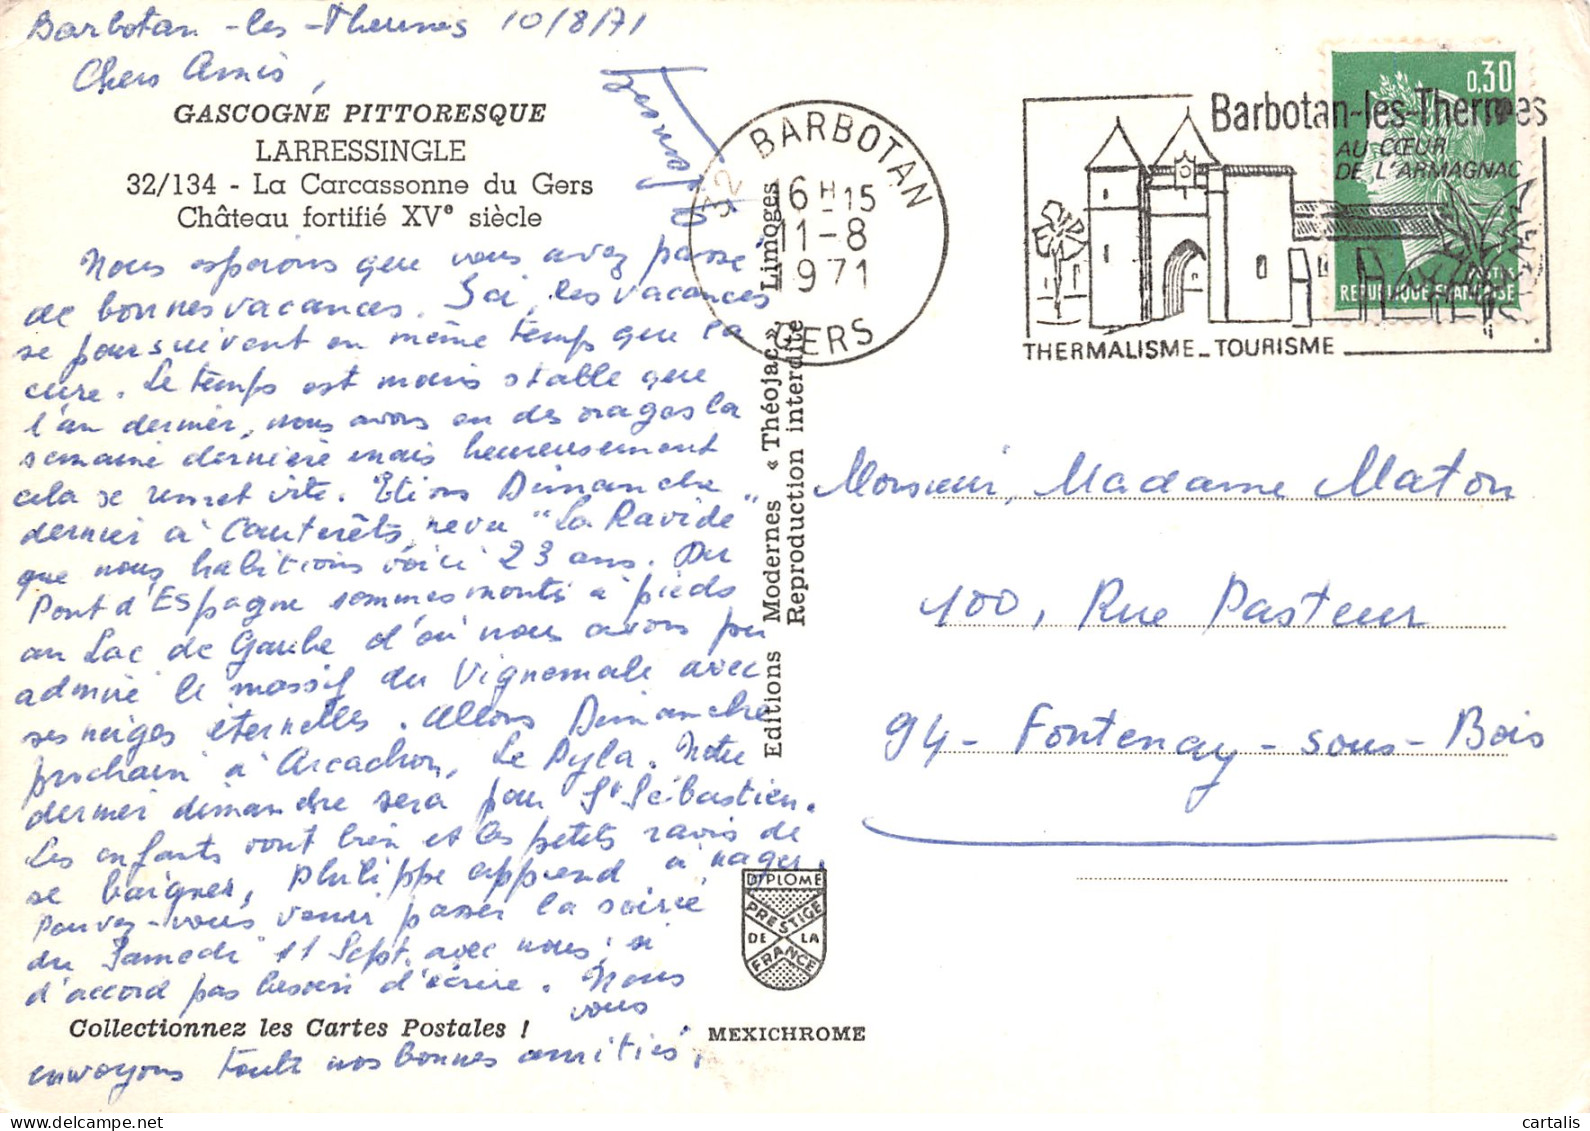 Barbotan-les-Thermes 10/8/71
Chers Amis,
GASCOGNE PITTORESQUE
LARRESSINGLE
32/134 - La Carcassonne du Gers
Château fortifié XVe siècle
Nous espérons que vous avez passé
de bonnes vacances. Ici, les vacances
se poursuivent en même temps que la
cure. Le temps est moins stable que
l'an dernier, nous avons eu des orages la
semaine dernière mais heureusement
cela se remet vite. Etions Dimanche
dernier à Cauterêts, revu "La Ravide"
que nous habitions voici 23 ans. Du
Pont d'Espagne sommes montés à pieds
au Lac de Gaube d'où nous avons pu
admiré le massif du Vignemale avec
ses neiges éternelles. Allons Dimanche
prochain à Arcachon, Le Pyla. Notre
dernier dimanche sera pour St Sébastien.
Les enfants vont bien et les petits ravis de
se baigner, Philippe apprend à nager.
Pouvez-vous venir passer la soirée
du Samedi 11 Sept. avec nous; si
d'accord pas besoin d'écrire. Nous
vous
Collectionnez les Cartes Postales !
envoyons toute nos bonnes amitiés.
Editions Modernes « Théojac » Limoges
Reproduction interdite
DIPLOME
PRESTIGE
DE LA
FRANCE
MEXICHROME
32 BARBOTAN
16H15
11-8
1971
GERS
Barbotan-les-Thermes
AU CŒUR
DE L'ARMAGNAC
THERMALISME_TOURISME
0,30
POSTES
REPUBLIQUE FRANÇAISE
Monsieur, Madame Maton
100, Rue Pasteur
94- Fontenay-sous-Bois
cartalis
delcampe.net